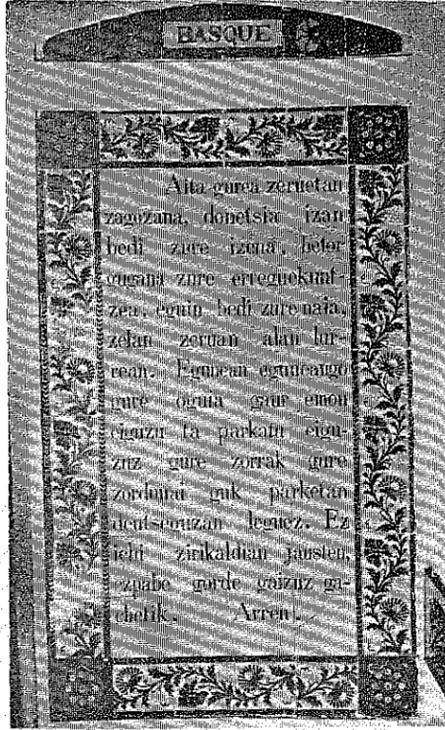 BASQUE
Aita gurea zeruetan
zagozana, donetsia izan
bedi zure izena, betor
gugana zure erreguekunt-
zea, eguin bedi zure naia,
zelan zeruan alan lur-
rean. Egunean eguneango
gure oguia gaur emon
eiguzu ta parkatu eigu-
zuz gure zorrak gure
zordunai guk parketan
deutseguzan leguez. Ez
ichi zirikaldian jausten,
ezpabe gorde gaizuz ga-
chetik. Arren!